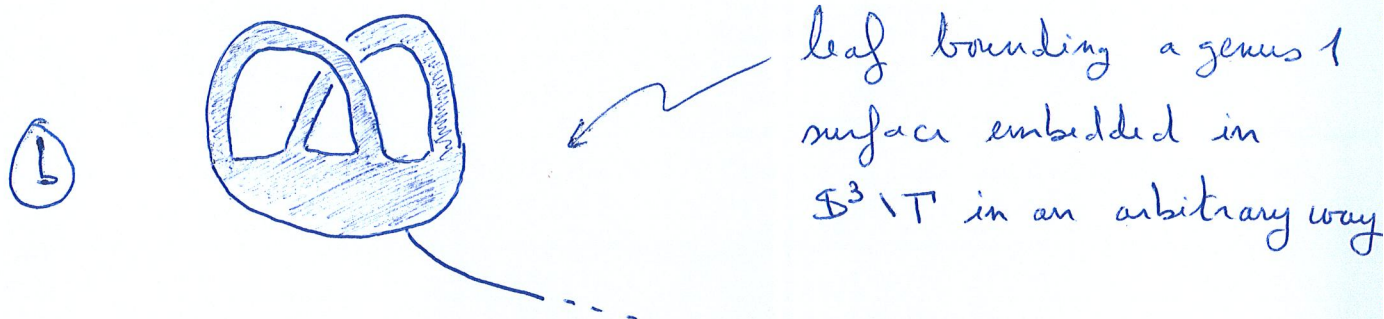 leaf bounding a genus 1
surface embedded in
$³ \ T in an arbitrary way
L